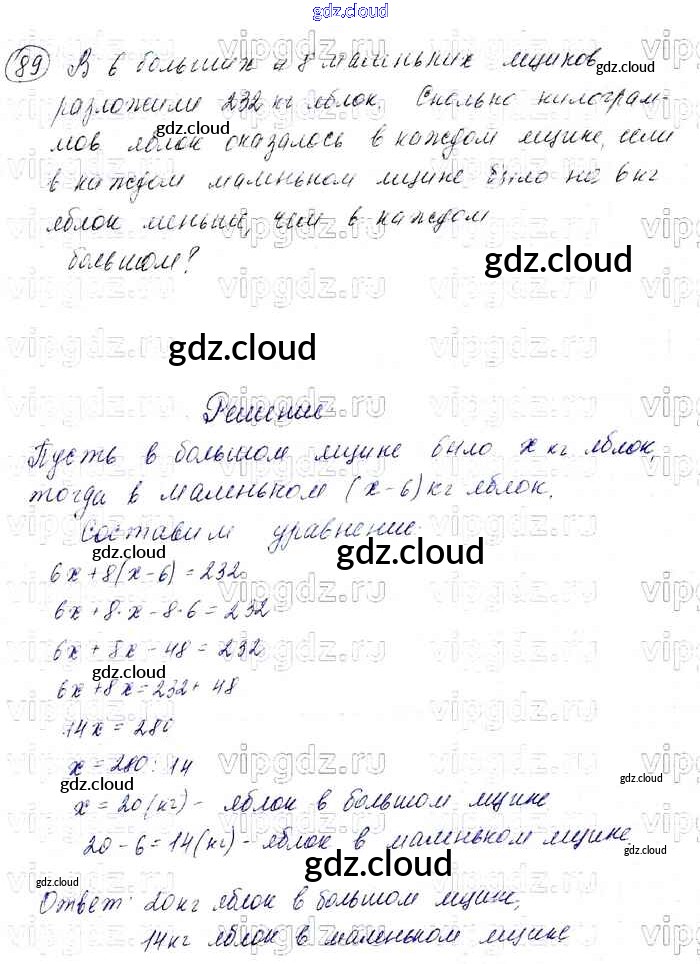 gdz.cloud
89 В 6 больших и 8 маленьких ящиков
gdz.cloud
разложили 232 кг яблок. Сколько килограм-
gdz.cloud
мов яблок оказалось в каждом ящике, если
в каждом маленьком ящике было на 6 кг
яблок меньше, чем в каждом
большом?
gdz.cloud
gdz.cloud
Решение
Пусть в большом ящике было x кг яблок,
тогда в маленьком (x-6) кг яблок.
Составим уравнение.
gdz.cloud gdz.cloud
6x+8(x-6)=232
6x+8·x-8·6=232
6x+8x-48=232
gdz.cloud
6x+8x=232+48
14x=280
x=280:14
gdz.cloud gdz.cloud
x=20(кг)- яблок в большом ящике
20-6=14(кг)-яблок в маленьком ящике.
gdz.cloud
gdz.cloud
gdz.cloud
Ответ: 20кг яблок в большом ящике,
14кг яблок в маленьком ящике